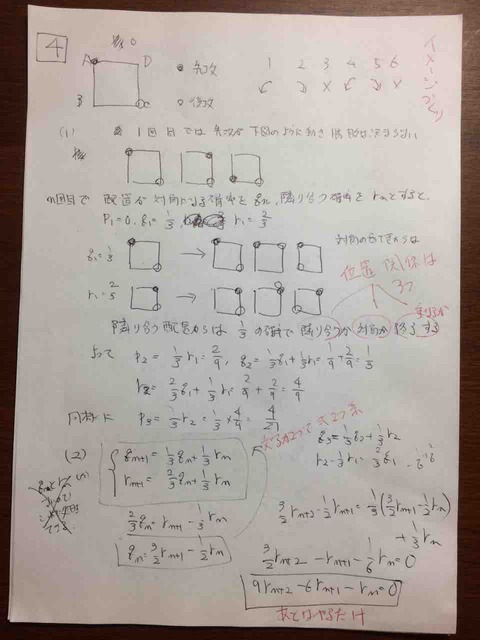 4
A D
B C
● 先攻
○ 後攻
1 2 3 4 5 6
イメージづくり
(1) 1回目では先攻が下図のように動き勝敗は決まらない
n回目で 配置が対角になる確率を qn, 隣り合う確率を rnとすると、
P1=0, q1=1/3, r1=2/3
q1=1/3 →
対角の
位置関係は
3つ
r1=2/3 →
隣り合う配置からは 1/3 の確率で隣り合うか 対角か 終了する
よって P2=1/3 r1=2/9, q2=1/3 q1+1/3 r1=1/9+2/9=1/3
r2=2/3 q1+1/3 r1=2/9+2/9=4/9
同様に P3=1/3 r2=1/3×4/9=4/27
(2)
qn+1=1/3 qn+1/3 rn
rn+1=2/3 qn+1/3 rn
q3=1/3 q2+1/3 r2
r2-1/3 r1=2/3 q1
2/3 qn=rn+1-1/3 rn
qn=3/2 rn+1-1/2 rn
3/2 rn+2-1/2 rn+1=1/3(3/2 rn+1-1/2 rn)
+1/3 rn
3/2 rn+2-rn+1-1/6 rn=0
9rn+2-6rn+1-rn=0
あとはやるだけ